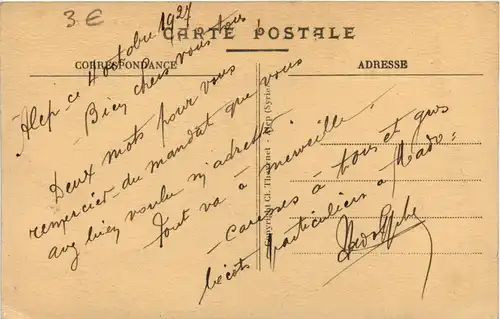 3 €
CARTE POSTALE
CORRESPONDANCE
ADRESSE
Alep ce 4 octobre 1927
Bien chers vous tous
Deux mots pour vous
remercier du mandat que vous
avez bien voulu m'adresser
Tout va à merveille.
Caresses à tous et gros
bécots particuliers à Mado.
Copyright Cl. Thévenet - Alep (Syrie)